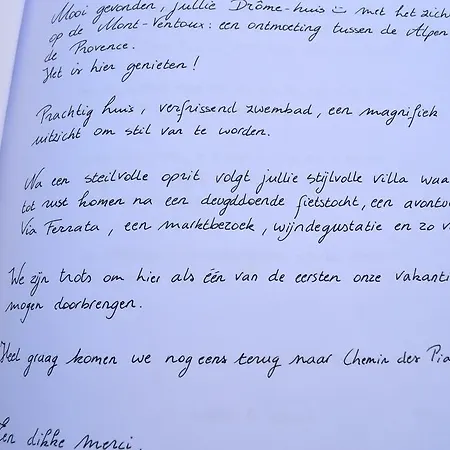 Mooi gevonden, jullie Drôme-huis :) met het zich
op de Mont-Ventoux: een ontmoeting tussen de Alpen
de Provence.
Het is hier genieten!
Prachtig huis, verfrissend zwembad, een magnifiek
uitzicht om stil van te worden.
Na een steilvolle oprit volgt jullie stijlvolle villa waa
tot rust komen na een deugddoende fietstocht, een avontu
Via Ferrata, een marktbezoek, wijndegustatie en zo v
We zijn trots om hier als één van de eersten onze vakanti
mogen doorbrengen.
Heel graag komen we nog eens terug naar Chemin des Pia
Een dikke merci.